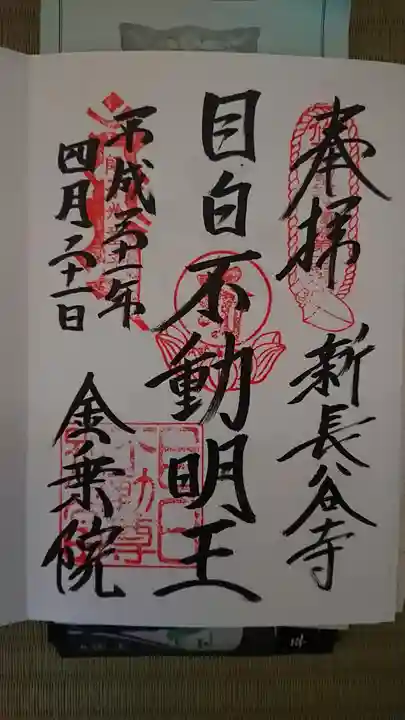 奉拝 新長谷寺
目白不動明王
平成三十一年
四月二十一日
金乗院